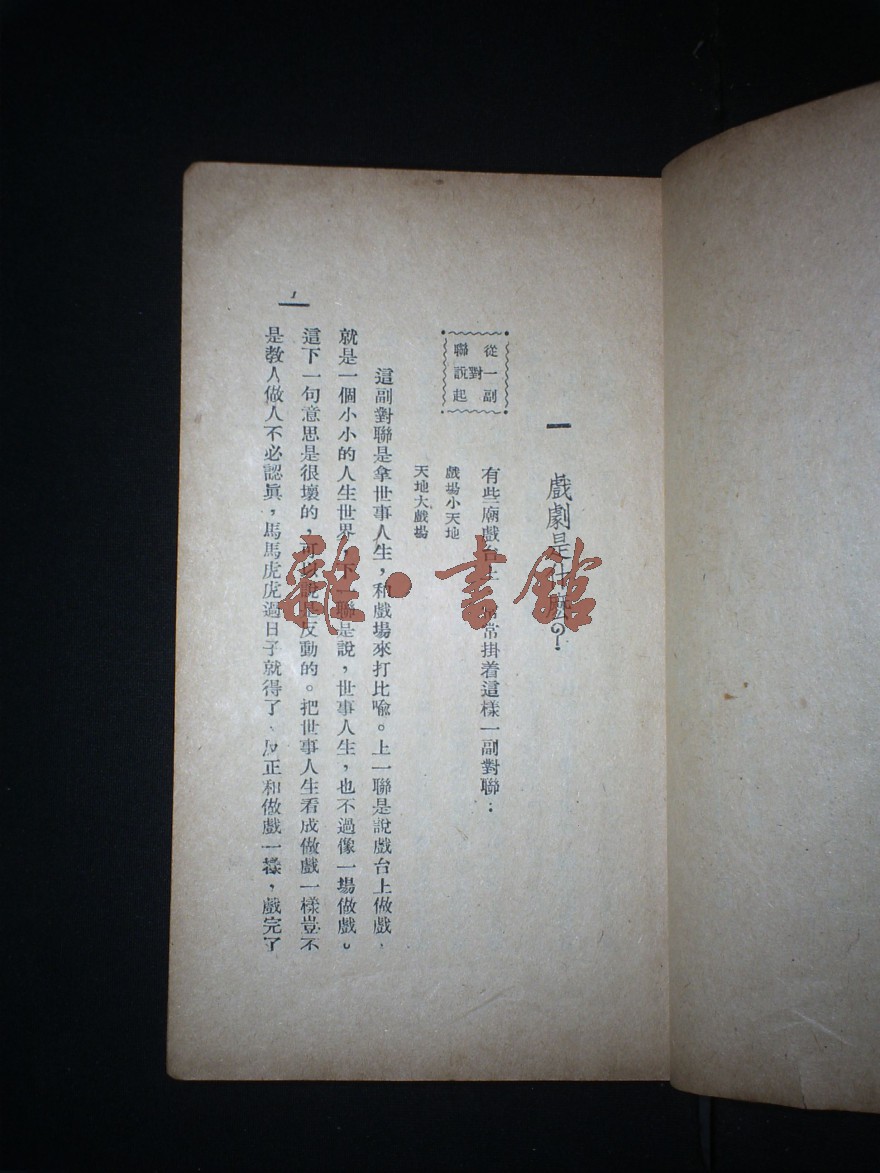 一 戲劇是什麽?
從一副
對
聯說起
有些廟戲台上 常常掛着這樣一副對聯:
戲場小天地
天地大戲場
這副對聯是拿世事人生,和戲場來打比喩。上一聯是說戲台上做戲,
就是一個小小的人生世界,下一聯是說,世事人生,也不過像一場做戲。
這下一句意思是很壞的,可以說是反動的。把世事人生看成做戲一樣豈不
是敎人做人不必認眞,馬馬虎虎過日子就得了、反正和做戲一樣,戲完了
1
雜·書館